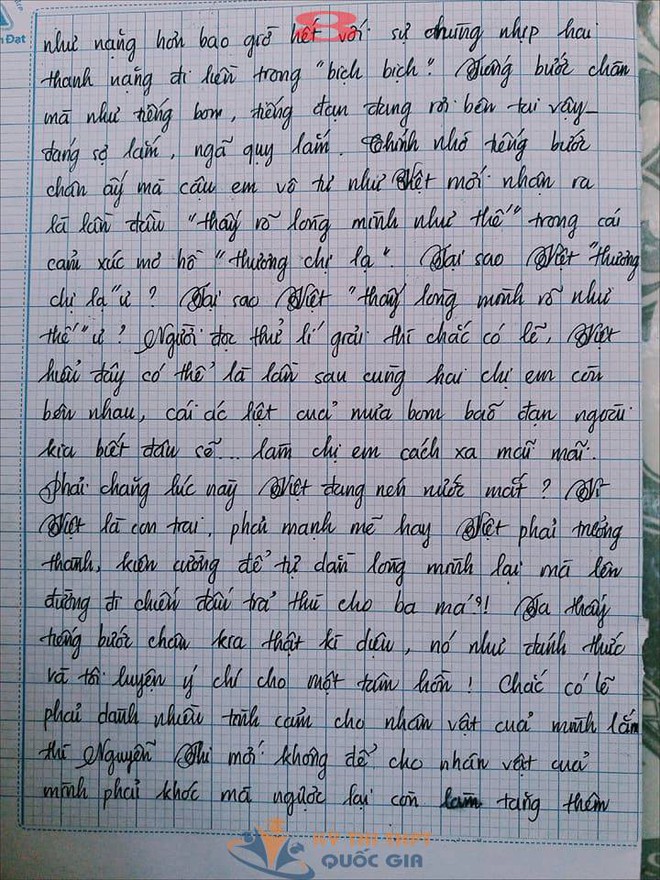 Đạt
8
như nặng hơn bao giờ hết với sự chùng nhịp hai
thanh nặng đi liền trong "bịch bịch". Tiếng bước chân
mà như tiếng bom, tiếng đạn đang rơi bên tai vậy
đáng sợ lắm, ngã quỵ lắm. Chính nhờ tiếng bước
chân ấy mà cậu em vô tư như Việt mới nhận ra
là lần đầu "thấy rõ lòng mình như thế" trong cái
cảm xúc mơ hồ "thương chị lạ". Tại sao Việt "thương
chị lạ" ư? Tại sao Việt "thấy lòng mình rõ như
thế" ư? Người đọc thử lí giải thì chắc có lẽ, Việt
hiểu đây có thể là lần sau cùng hai chị em còn
bên nhau, cái ác liệt của mưa bom bão đạn ngoài
kia biết đâu sẽ... làm chị em cách xa mãi mãi.
Phải chăng lúc này Việt đang nén nước mắt? Vì
Việt là con trai, phải mạnh mẽ hay Việt phải trưởng
thành, kiên cường để tự dằn lòng mình lại mà lên
đường đi chiến đấu trả thù cho ba má?! Ta thấy
tiếng bước chân kia thật kì diệu, nó như đánh thức
và tôi luyện ý chí cho một tâm hồn! Chắc có lẽ
phải dành nhiều tình cảm cho nhân vật của mình lắm
thì Nguyễn Thi mới không để cho nhân vật của
mình phải khóc mà ngược lại còn làm tăng thêm
KỲ THI THPT
QUỐC GIA